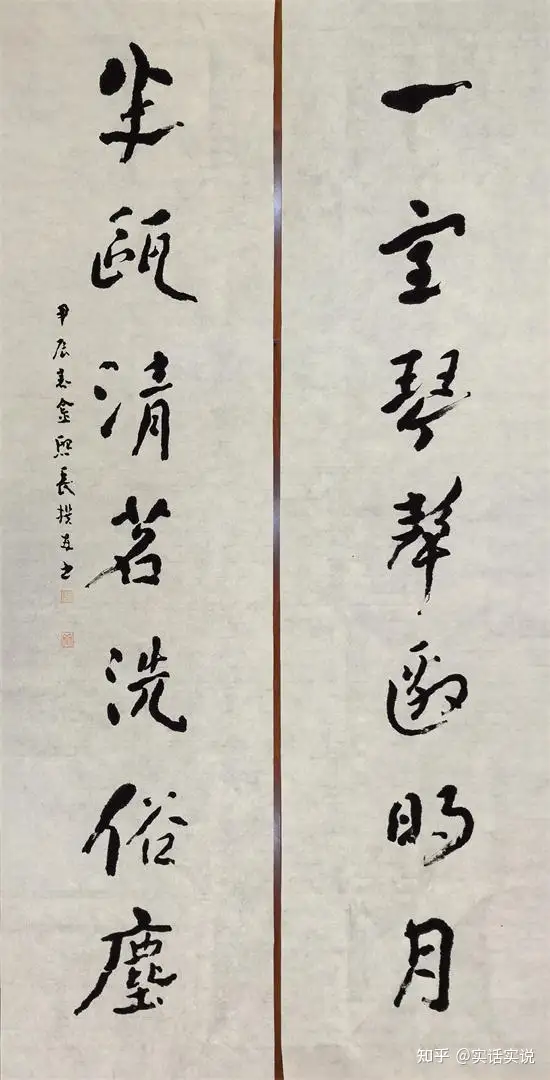 一室琴聲邀明月
半甌清茗洗俗塵
甲辰春金熙長撰並書
知乎 @实话实说